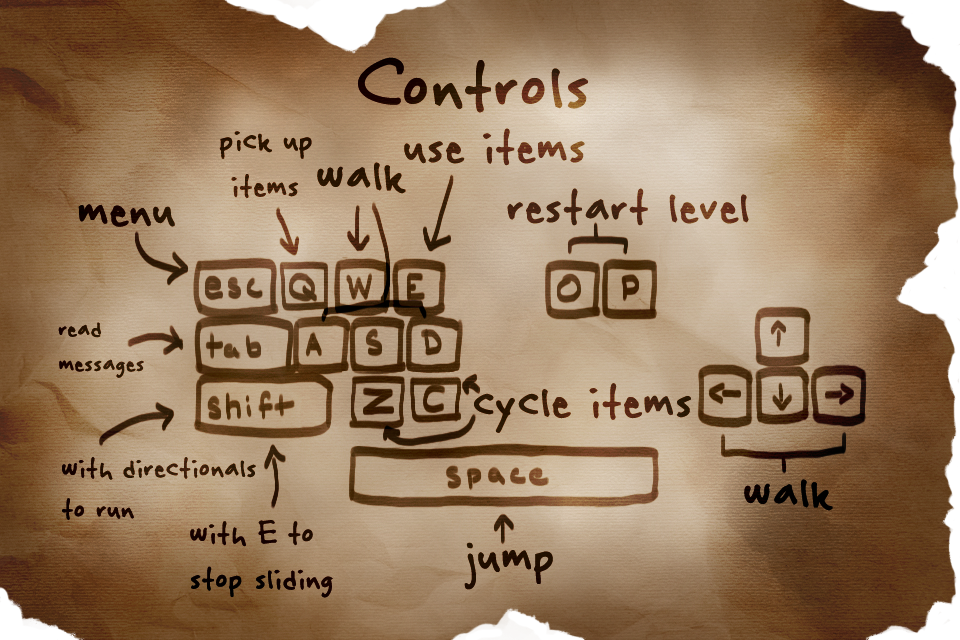 Controls
pick up
items
walk
use items
menu
restart level
esc Q W E
O P
read
messages
tab A S D
↑
shift Z C
cycle items
← ↓ →
with directionals
to run
space
walk
with E to
stop sliding
jump